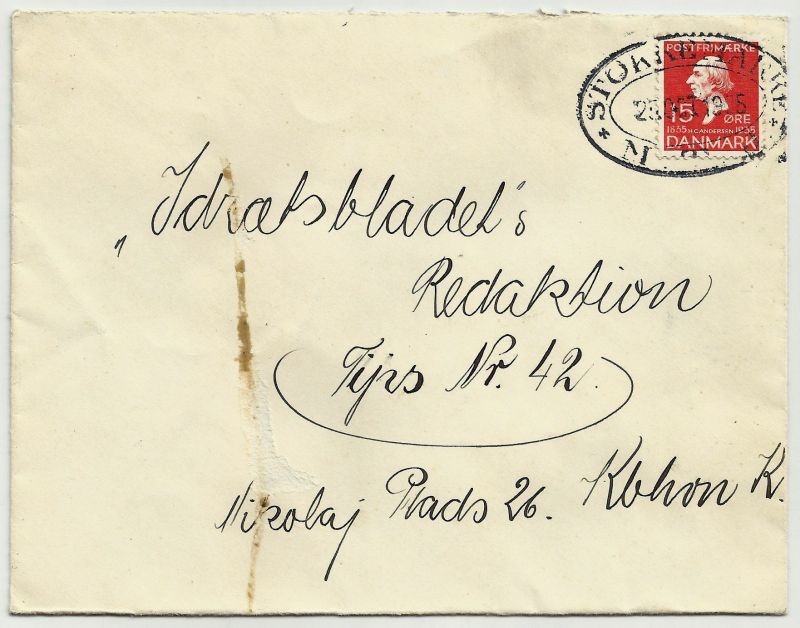 POSTFRIMÆRKE
15 ØRE
1835 H.C. ANDERSEN 1935
DANMARK
„Idrætsbladet"s
Redaktion
Tips Nr. 42.
Nikolaj Plads 26. Kbhvn K.